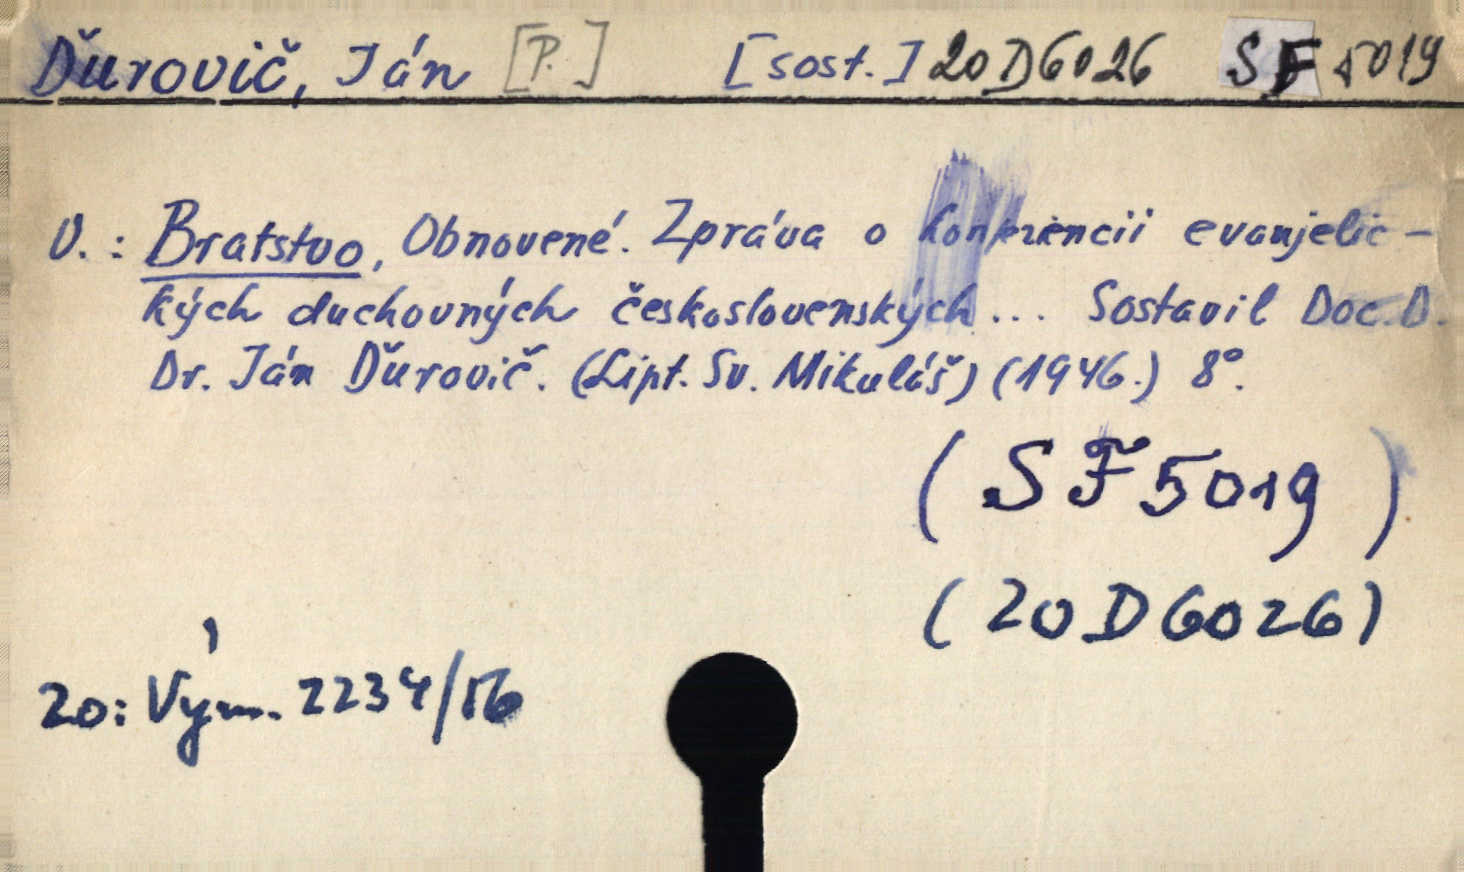 Ďurovič, Ján [P.] [sost.] 20 D 6026 SF 5019
V.: Bratstvo, Obnovené. Zpráva o konferencii evanjelic-
kých duchovných československých... Sostavil Doc. D.
Dr. Ján Ďurovič. (Lipt. Sv. Mikuláš) (1946.) 8°.
(SF 5019)
(20 D 6026)
20: Vým. 2234/56